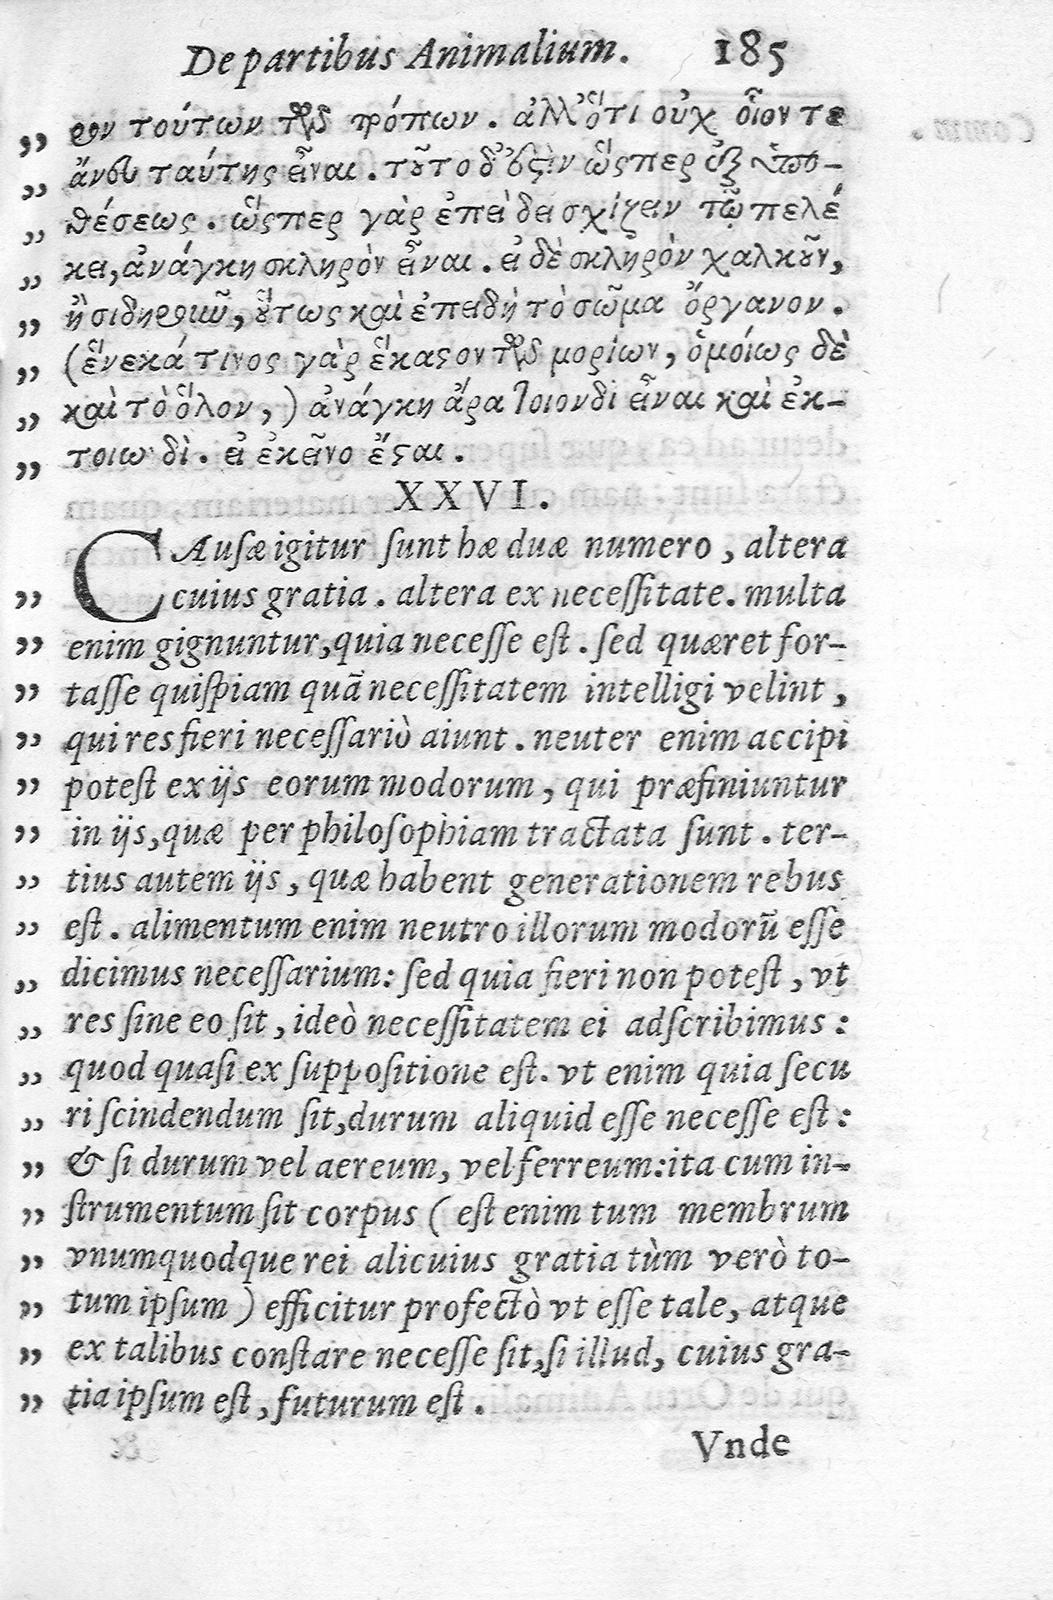 De partibus Animalium. 185
ρον τούτων τῶν τρόπων. ἀλλ' ὅτι οὐχ οἷον τε
ἄνευ ταύτης εἶναι. τοῦτο δ' ἐστὶν ὥσπερ ἐξ ὑπο-
θέσεως. ὥσπερ γὰρ ἐπεὶ δεῖ σχίζειν τῷ πελέ
κει, ἀνάγκη σκληρὸν εἶναι. εἰ δὲ σκληρὸν χαλκοῦν,
ἢ σιδηροῦν, οὕτως καὶ ἐπειδὴ τὸ σῶμα ὄργανον.
(ἕνεκά τινος γὰρ ἕκαστον τῶν μορίων, ὁμοίως δὲ
καὶ τὸ ὅλον,) ἀνάγκη ἄρα τοιονδὶ εἶναι καὶ ἐκ-
τοιωνδὶ. εἰ ἐκεῖνο ἔσται.
XXVI.
CAusæ igitur sunt hæ duæ numero, altera
cuius gratia. altera ex necessitate. multa
enim gignuntur, quia necesse est. sed quæret for-
tasse quispiam quã necessitatem intelligi velint,
qui res fieri necessariò aiunt. neuter enim accipi
potest ex ijs eorum modorum, qui præfiniuntur
in ijs, quæ per philosophiam tractata sunt. ter-
tius autem ijs, quæ habent generationem rebus
est. alimentum enim neutro illorum modorũ esse
dicimus necessarium: sed quia fieri non potest, vt
res sine eo sit, ideò necessitatem ei adscribimus:
quod quasi ex suppositione est. vt enim quia secu
ri scindendum sit, durum aliquid esse necesse est:
& si durum vel aereum, vel ferreum: ita cum in-
strumentum sit corpus (est enim tum membrum
vnumquodque rei alicuius gratia tùm verò to-
tum ipsum) efficitur profectò vt esse tale, atque
ex talibus constare necesse sit, si illud, cuius gra-
tia ipsum est, futurum est.
Vnde